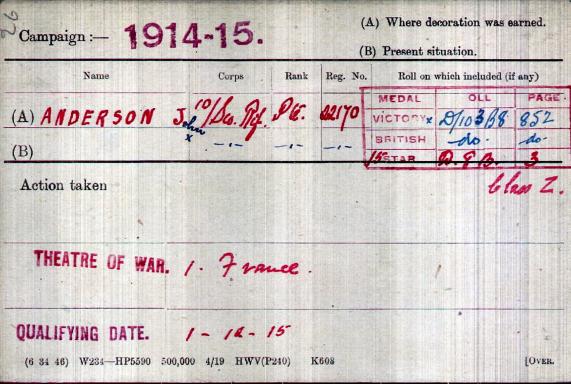 26
(A) Where decoration was earned.
Campaign :— 1914-15.
(B) Present situation.
Name Corps Rank Reg. No. Roll on which included (if any)
MEDAL ROLL PAGE
(A) ANDERSON J. 10/Sco. Rif. Pte. 22170
John
x
VICTORY x D/103B8 852
(B) -"- -"- -"-
BRITISH -do- -do-
15 STAR D.8B. 3
Action taken
Class Z.
THEATRE OF WAR. 1. France.
QUALIFYING DATE. 1-12-15
(6 34 46) W234—HP5590 500,000 4/19 HWV(P240) K608 [OVER.